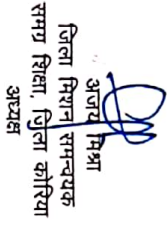 अजय मिश्रा
जिला मिशन समन्वयक
समग्र शिक्षा, जिला कोरिया
अध्यक्ष